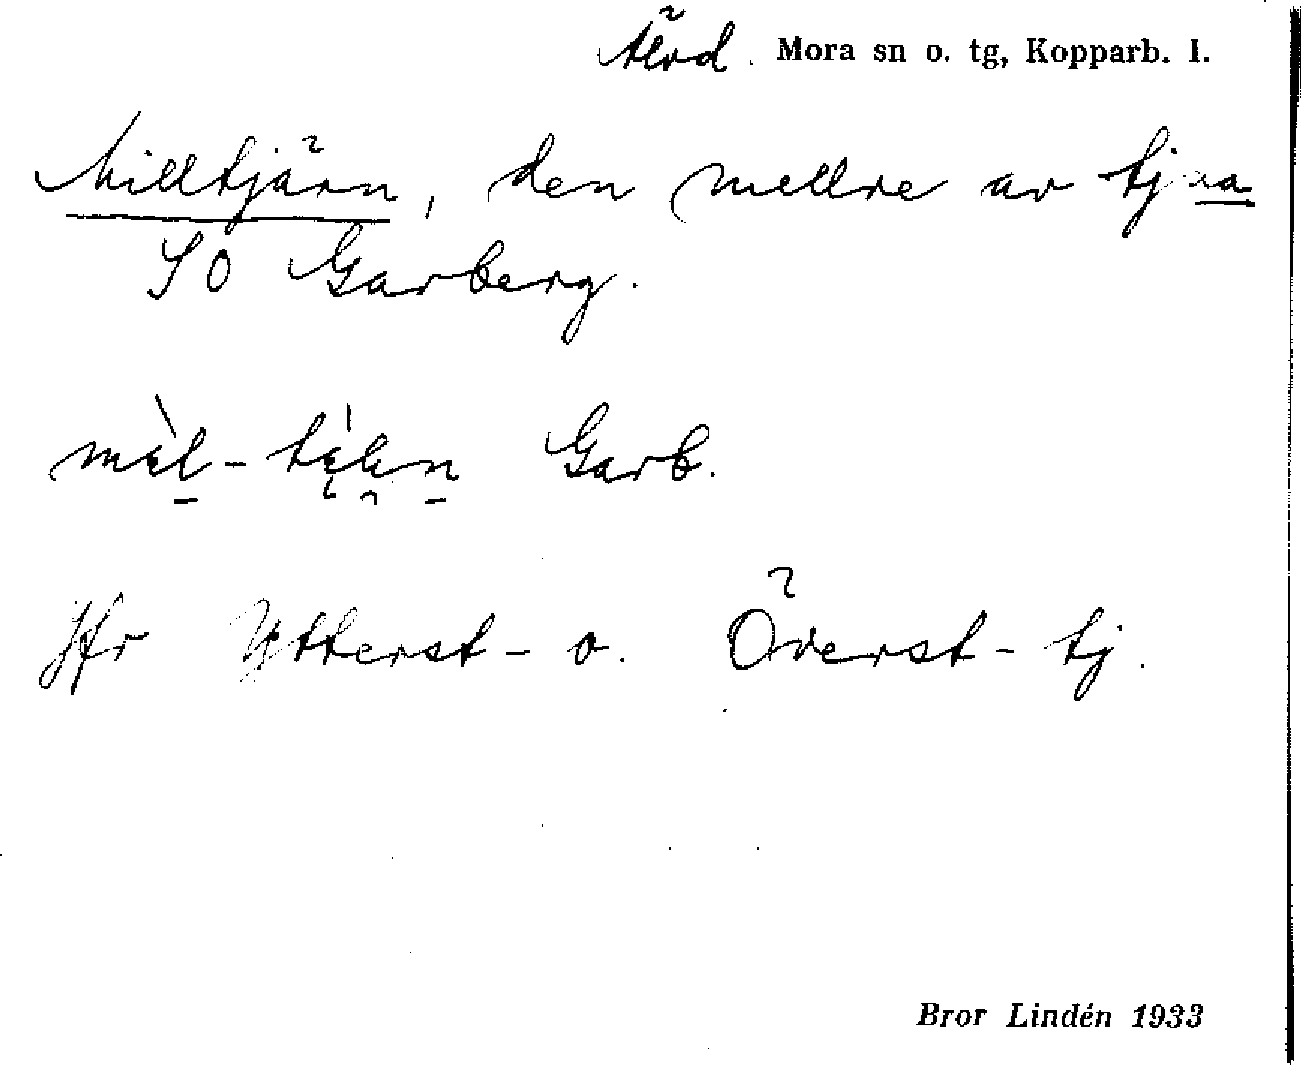 Älvd. Mora sn o. tg, Kopparb. l.
Milltjärn, den mellre av tj-a
SO Garberg.
Garb.
Jfr Ytterst- o. Överst-tj.
Bror Lindén 1933